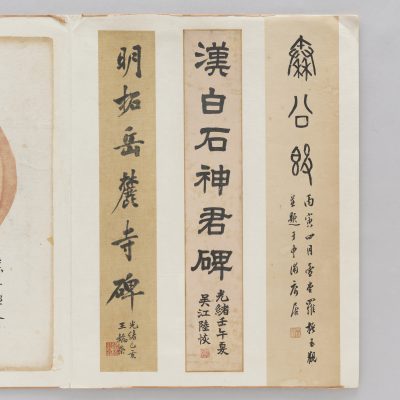 公
丙寅四月雪堂羅振玉觀
並題于寓居
漢白石神君碑
光緒壬午夏
吳江陸恢
明拓岳麓寺碑
光緒己亥
王懿榮